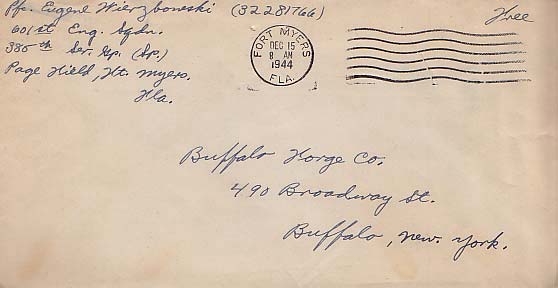 Pfc. Eugene Wierzbowski (32281766)
Free
601st Eng. Sqdn.
335th Ser. Gp. (Sp.)
Page Field, Ft. Myers.
Fla.
FORT MYERS
DEC 15
8 AM
1944
FLA.
Buffalo Forge Co.
490 Broadway St.
Buffalo, New. York.